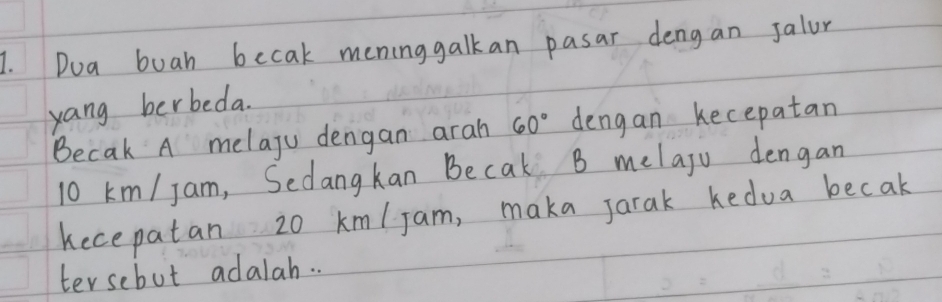 1. Dua buah becak meninggalkan pasar dengan jalur
yang berbeda.
Becak A melaju dengan arah 60° dengan kecepatan
10 km/jam, Sedangkan Becak B melaju dengan
kecepatan 20 km/jam, maka jarak kedua becak
tersebut adalah..